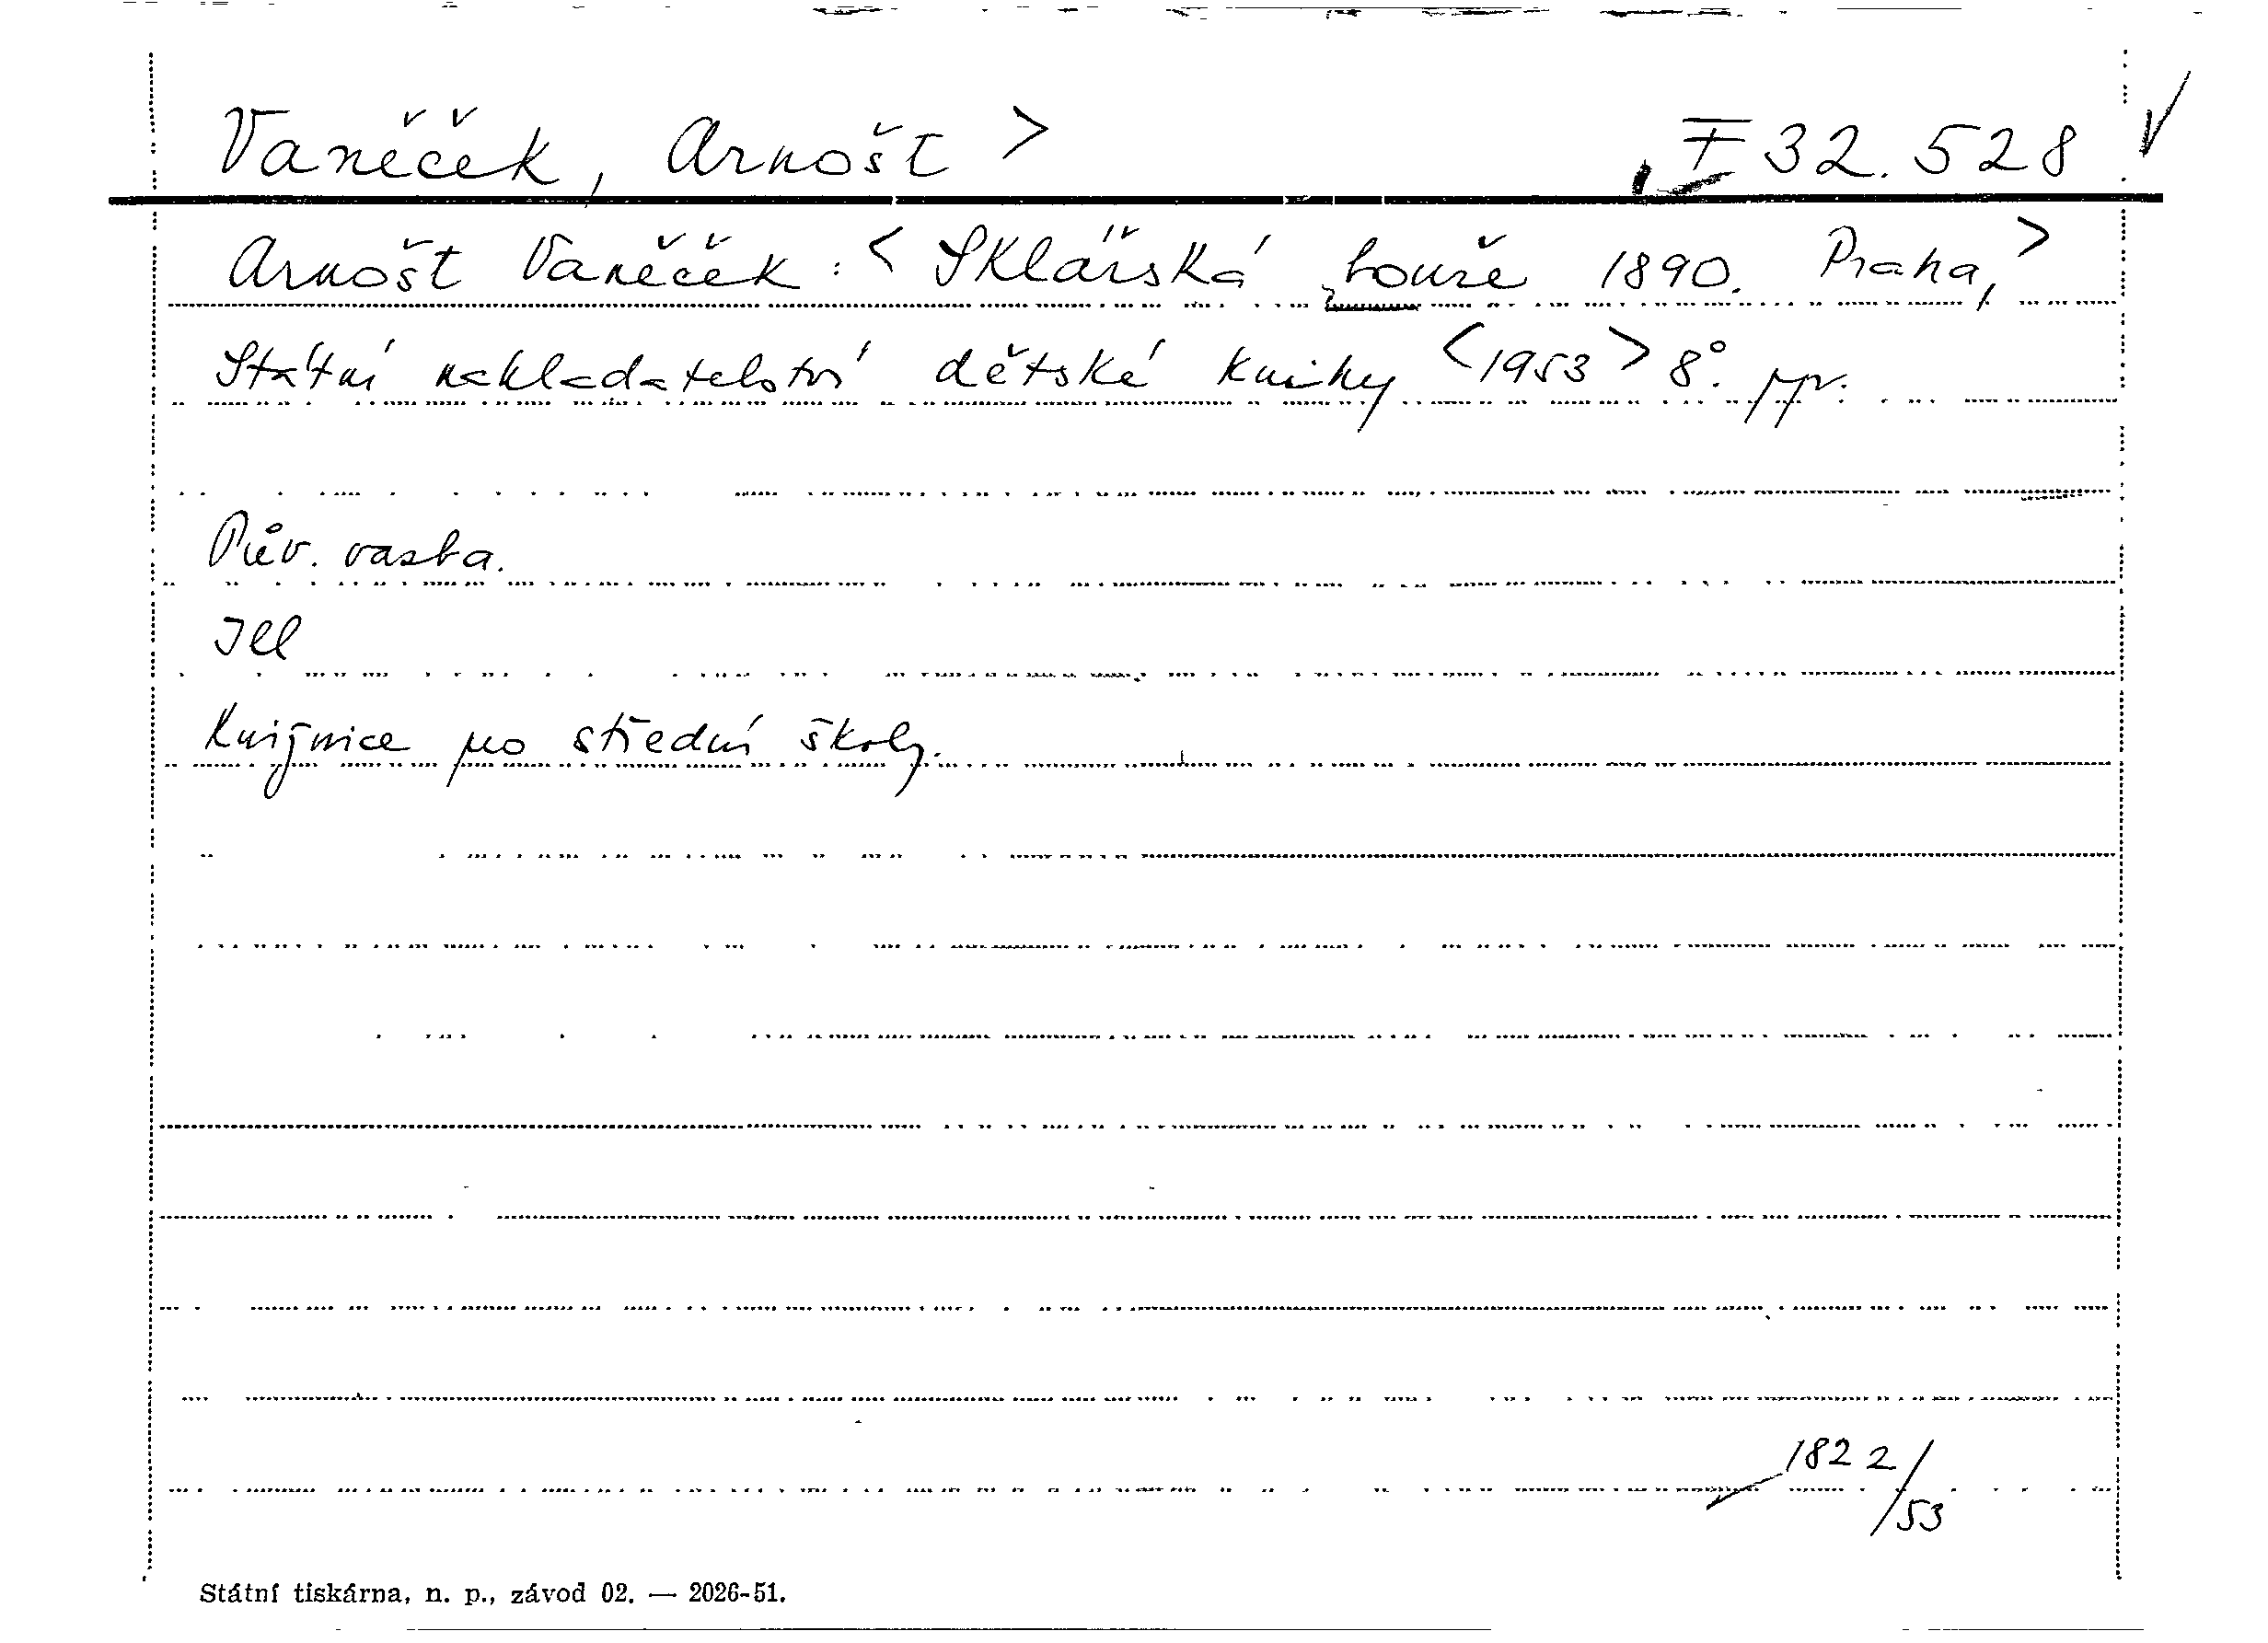 Vaněček, Arnošt > I 32.528 √
Arnošt Vaněček: < Sklářská bouře 1890. Praha, >
Státní nakladatelství dětské knihy <1953> 8°. ppr.
Pův. vazba.
Ill
Knižnice pro střední školy.
1822/53
Státní tiskárna, n. p., závod 02. — 2026-51.